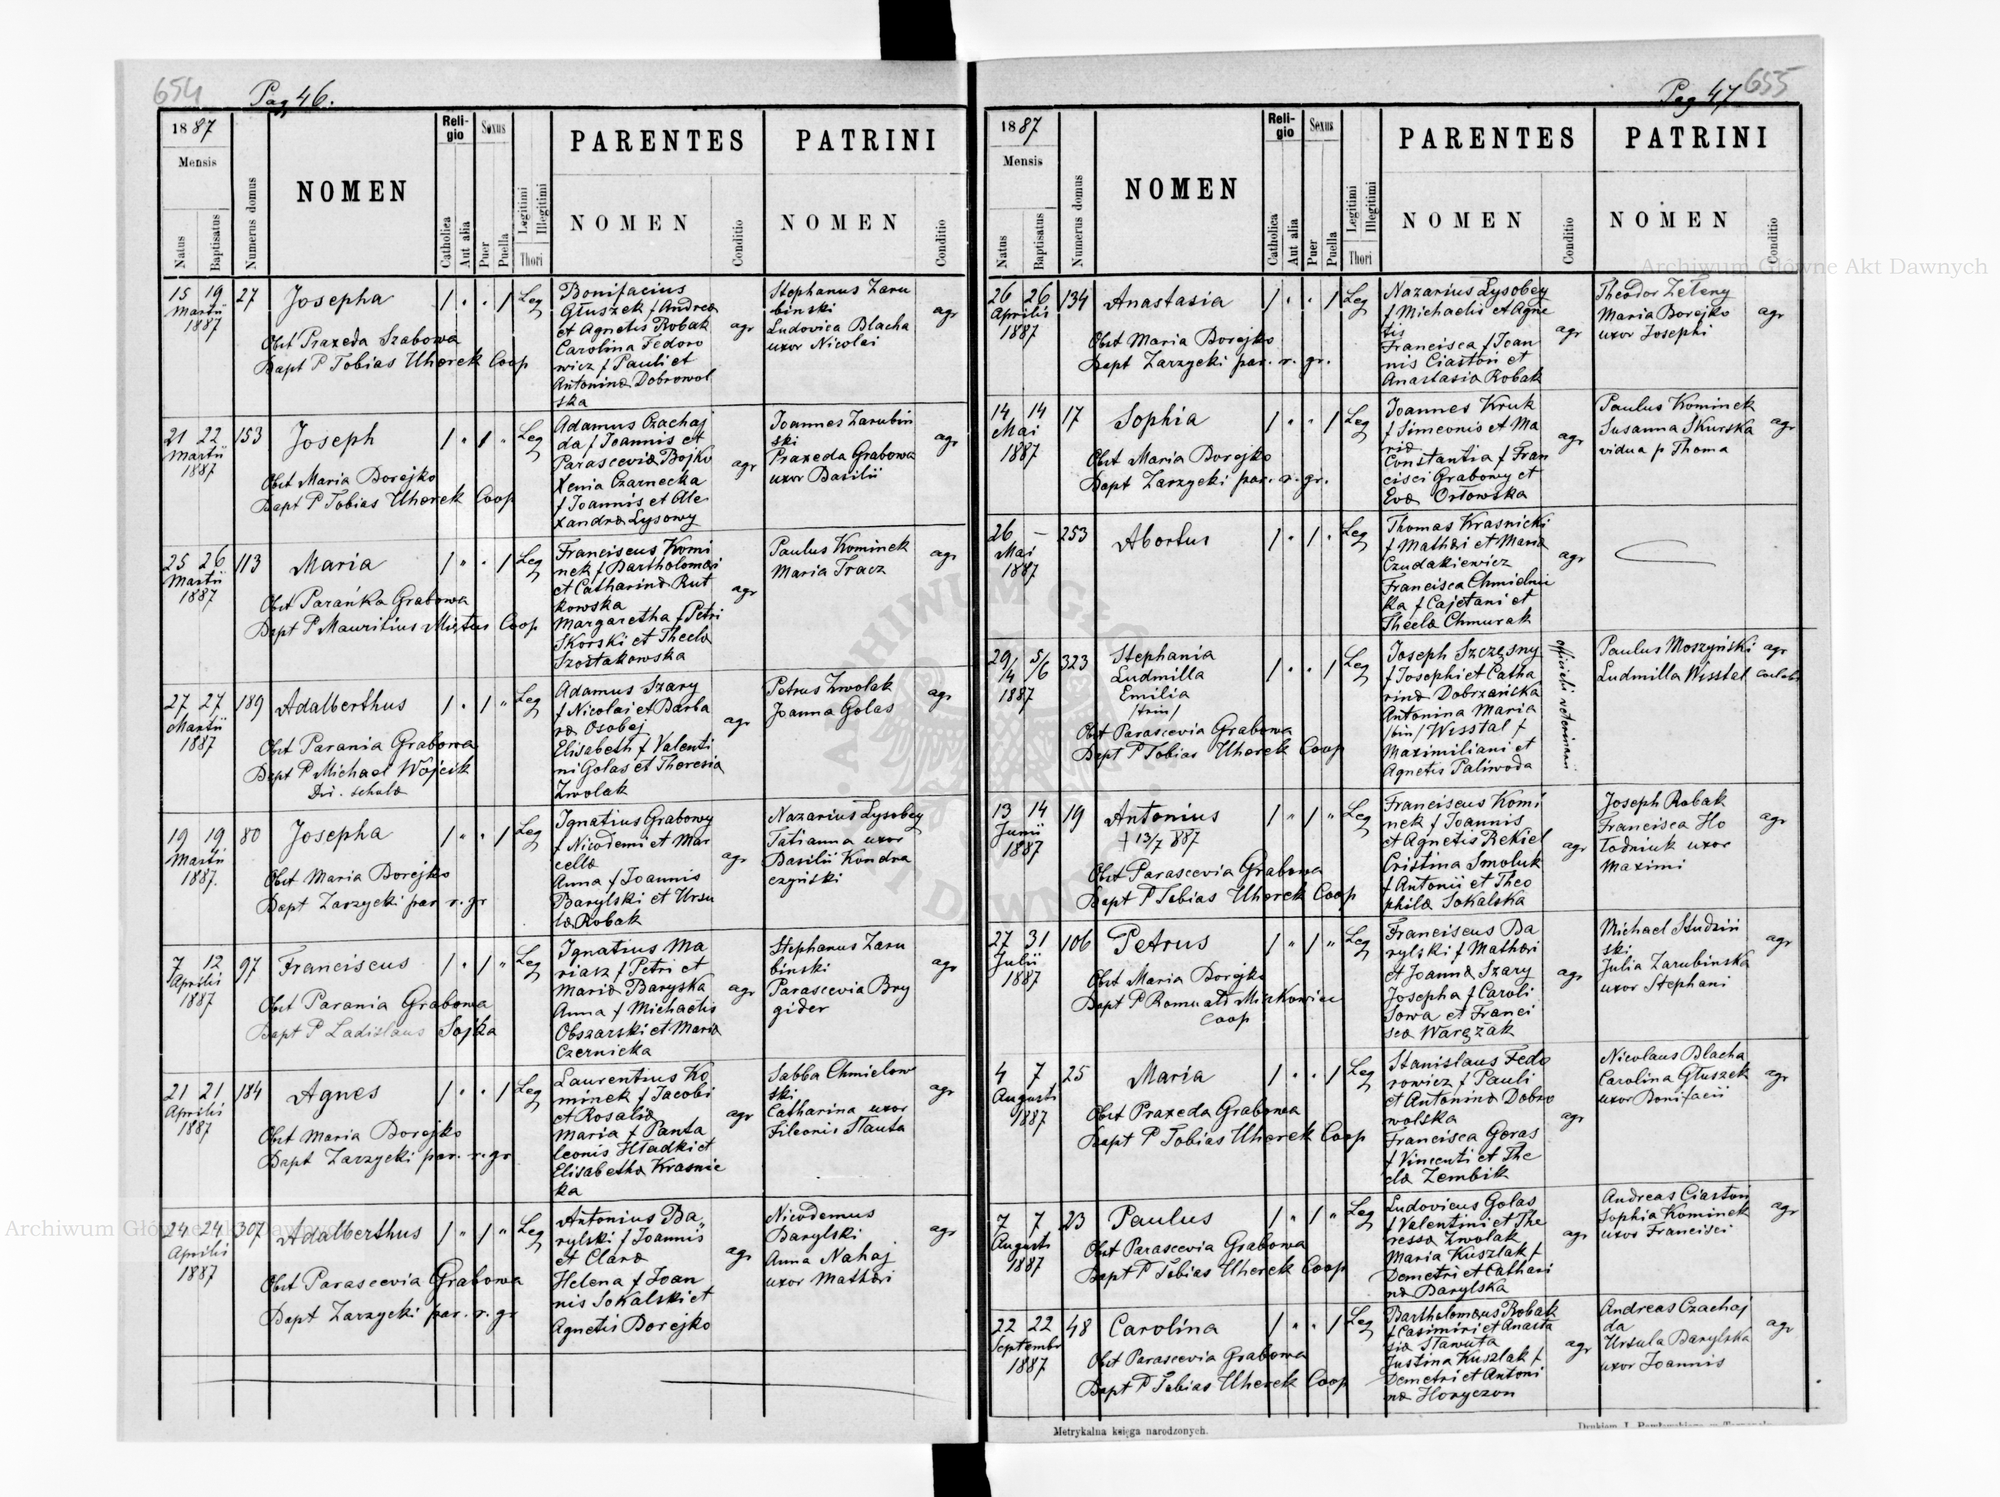 654
Pag 46.
1887
Mensis
Natus
Baptisatus
Numerus domus
NOMEN
Religio
Catholica
Aut alia
Sexus
Puer
Puella
Legitimi
Illegitimi
Thori
PARENTES
NOMEN
Conditio
PATRINI
NOMEN
Conditio
15 19 27 Josepha 1 1 Leg
Martii
1887
Obst Praxeda Szabowa
Bapt P Tobias Uherek Coop
Bonifacius
Głuszek f Andreæ
et Agnetis Robak
Carolina Fedoro
wicz f Pauli et
Antoninæ Dobrowol
ska
agr
Stephanus Zaru
binski
Ludovica Blacha
uxor Nicolai
agr
21 22 153 Joseph 1 1 Leg
Martii
1887
Obst Maria Borejko
Bapt P Tobias Uherek Coop
Adamus Czachaj
da f Joannis et
Parasceviæ Bojko
Xenia Czarnecka
f Joannis et Ale
xandræ Lysowy
agr
Joannes Zarubin
ski
Praxeda Grabowa
uxor Basilii
agr
25 26 113 Maria 1 1 Leg
Martii
1887
Obst Parańka Grabowa
Bapt P Mauritius Mistus Coop
Franciscus Komi
nek f Bartholomæi
et Catharinæ Rut
kowska
Margaretha f Petri
Skorski et Theclæ
Szostakowska
agr
Paulus Kominek
Maria Tracz
agr
27 27 189 Adalberthus 1 1 Leg
Martii
1887
Obst Parania Grabowa
Bapt P Michael Wójcik
Dir. scholæ
Adamus Szary
f Nicolai et Barba
ræ Osobej
Elisabeth f Valenti
ni Golas et Theresia
Zwolak
agr
Petrus Zwolak
Joanna Golas
agr
19 19 80 Josepha 1 1 Leg
Martii
1887.
Obst Maria Borejko
Bapt Zarzycki par r. gr
Ignatius Grabowy
f Nicodemi et Mar
cellæ
Anna f Joannis
Barylski et Ursu
læ Robak
agr
Nazarius Lysobey
Tatianna uxor
Basilii Kondra
czyński
7 12 97 Franciscus 1 1 Leg
Aprilis
1887
Obst Parania Grabowa
Bapt P Ladislaus Sojka
Ignatius Ma
riasz f Petri et
Mariæ Baryska
Anna f Michaelis
Obszarski et Mariæ
Czernicka
agr
Stephanus Zaru
binski
Parascevia Bry
gider
agr
21 21 184 Agnes 1 1 Leg
Aprilis
1887
Obst Maria Borejko
Bapt Zarzycki par. r. gr
Laurentius Ko
minek f Jacobi
et Rosaliæ
Maria f Panta
leonis Hładki et
Elisabethæ Krasnic
ka
agr
Sabba Chmielow
ski
Catharina uxor
Fileonis Stauta
agr
24 24 307 Adalberthus 1 1 Leg
Aprilis
1887
Obst Parascevia Grabowa
Bapt Zarzycki par. r. gr
Antonius Ba
rylski f Joannis
et Claræ
Helena f Joan
nis Sokalski et
Agnetis Borejko
agr
Nicodemus
Barylski
Anna Nahaj
uxor Mathæi
agr
655
Pag 47
1887
Mensis
Natus
Baptisatus
Numerus domus
NOMEN
Religio
Catholica
Aut alia
Sexus
Puer
Puella
Legitimi
Illegitimi
Thori
PARENTES
NOMEN
Conditio
PATRINI
NOMEN
Conditio
26 26 134 Anastasia 1 1 Leg
Aprilis
1887
Obst Maria Borejko
Bapt Zarzycki par. r. gr.
Nazarius Lysobey
f Michaelis et Agne
tis
Francisca f Joan
nis Ciastoń et
Anastasiæ Robak
agr
Theodor Zeleny
Maria Borejko
uxor Josephi
agr
14 14 17 Sophia 1 1 Leg
Mai
1887
Obst Maria Borejko
Bapt Zarzycki par. r. gr.
Joannes Kruk
f Simeonis et Ma
riæ
Constantia f Fran
cisci Grabowy et
Evæ Orłowska
agr
Paulus Kominek
Susanna Skurska
vidua p Thoma
agr
26 – 253 Abortus 1 1 Leg
Mai
1887
Thomas Krasnicki
f Mathæi et Mariæ
Czudakiewicz
Francisca Chmielnic
ka f Cajetani et
Theclæ Chmurak
agr
29/4 5/6 323 Stephania 1 1 Leg
1887
Ludmilla
Emilia
/trin/
Obst Parascevia Grabowa
Bapt P Tobias Uherek Coop
Joseph Szczęsny
f Josephi et Catha
rinæ Dobrzańska
Antonina Maria
/bin/ Wesstal f
Maximiliani et
Agnetis Paliwoda
Paulus Moszyński agr
Ludmilla Wesstal
13 14 19 Antonius 1 1 Leg
Junii
1887
+ 13/7 887
Obst Parascevia Grabowa
Bapt P Tobias Uherek Coop
Franciscus Komi
nek f Joannis
et Agnetis Rekiel
Cristina Smoluk
f Antonii et Theo
philæ Sokalska
agr
Joseph Robak
Francisca Ho
łodniuk uxor
Maximi
agr
27 31 106 Petrus 1 1 Leg
Julii
1887
Obst Maria Borejko
Bapt P Romuald Miskowiec
Coop
Franciscus Ba
rylski f Mathæi
et Joannæ Szary
Josepha f Caroli
Sowa et Franci
scæ Waręzak
agr
Michael Studziń
ski
Julia Zarubinska
uxor Stephani
agr
4 7 25 Maria 1 1 Leg
Augusti
1887
Obst Praxeda Grabowa
Bapt P Tobias Uherek Coop
Stanislaus Fedo
rowicz f Pauli
et Antoninæ Dobro
wolska
Francisca Geras
f Vincenti et The
clæ Zembik
agr
Nicolaus Blacha
Carolina Głuszek
uxor Bonifacii
agr
7 7 23 Paulus 1 1 Leg
Augusti
1887
Obst Parascevia Grabowa
Bapt P Tobias Uherek Coop
Ludovicus Golas
f Valentini et The
resæ Zwolak
Maria Kuszlak f
Demetri et Cathari
næ Barylska
agr
Andreas Ciastoń
Sophia Kominek
uxor Francisci
agr
22 22 48 Carolina 1 1 Leg
Septembr
1887
Obst Parascevia Grabowa
Bapt P Tobias Uherek Coop
Bartholomæus Robak
f Casimiri et Anasta
siæ Stawuta
Justina Kuszlak f
Demetri et Antoni
næ Horyczon
agr
Andreas Czachaj
da
Ursula Barylska
uxor Joannis
agr
Metrykalna księga narodzonych.
Archiwum Główne Akt Dawnych
Archiwum Główne Akt Dawnych